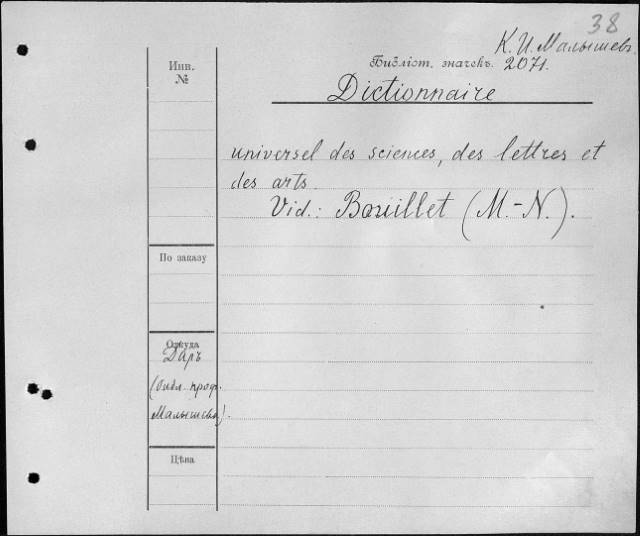 38
К. И. Малышев.
Библіот. значекъ. 2071.
Инв.
№
Dictionnaire
universel des sciences, des lettres et
des arts.
Vid.: Bouillet (M.-N.).
По заказу
Откуда
Даръ
(библ. проф.
Малышева).
Цѣна